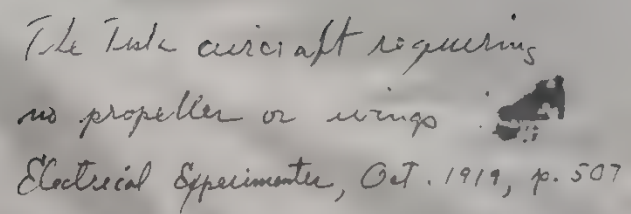 The Tesla aircraft requiring
no propeller or wings :
Electrical Experimenter, Oct. 1919, p. 507